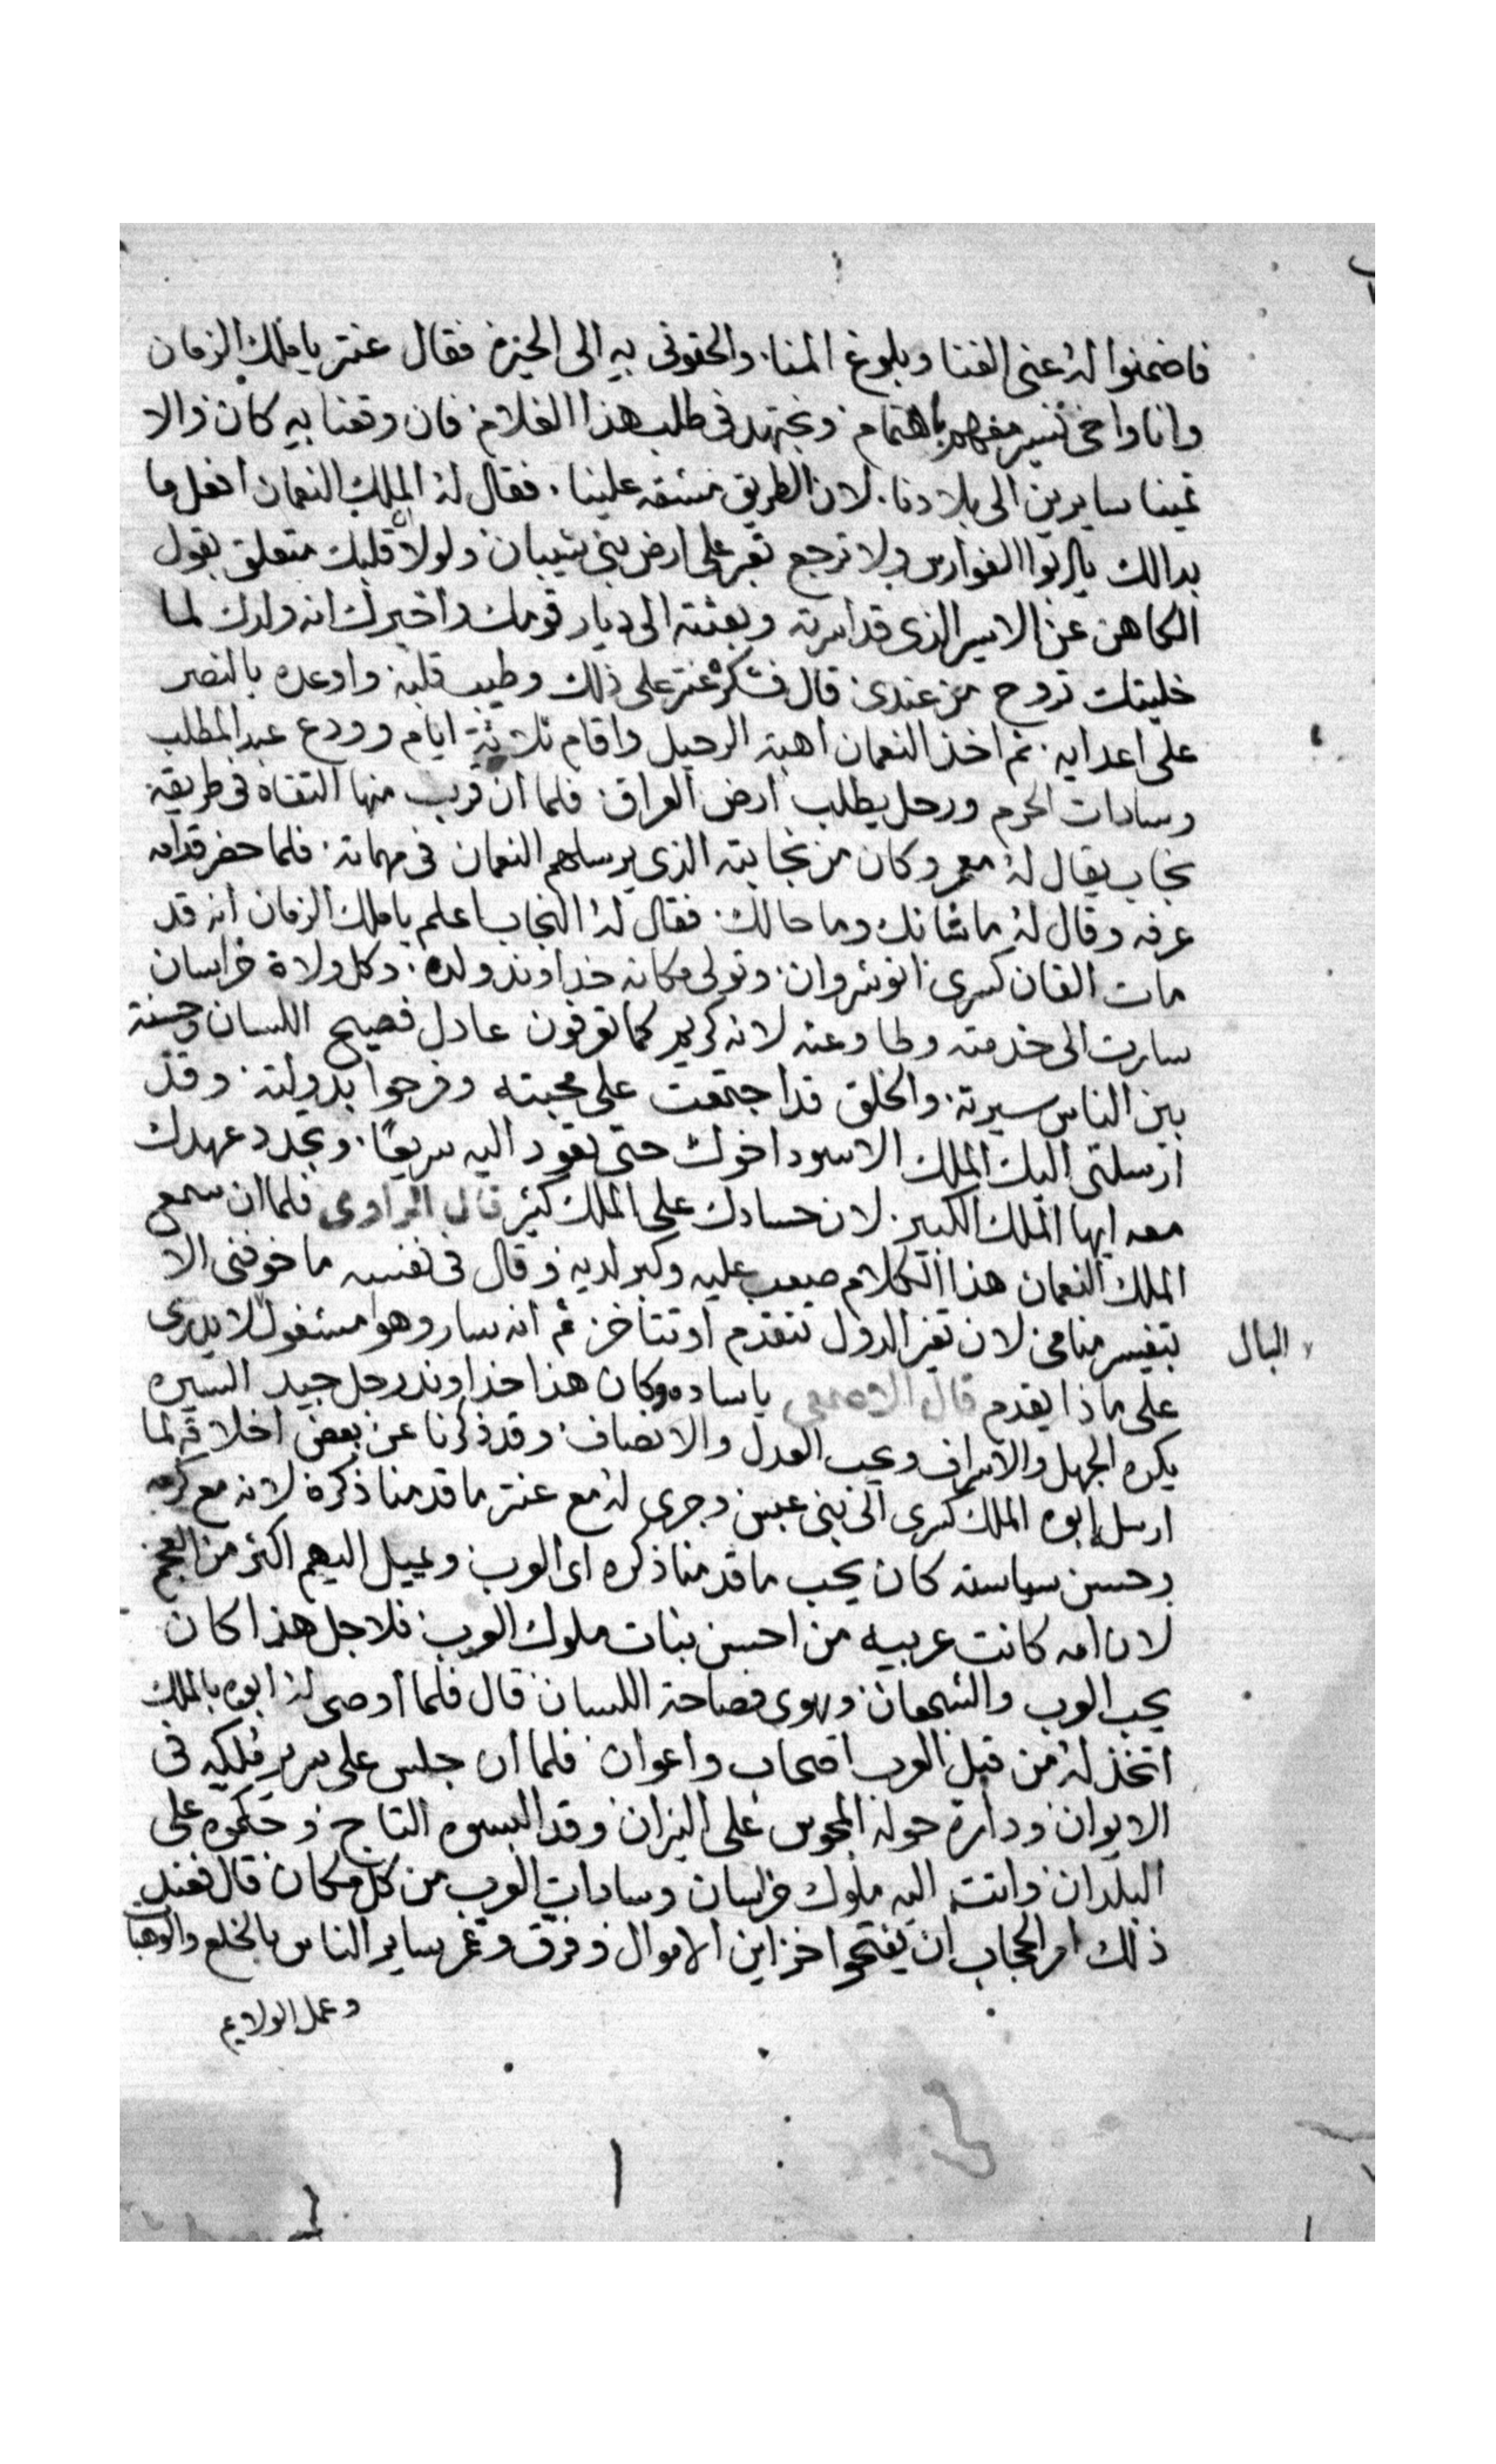 فاضمنوا له عنى الغنا وبلوغ المنا. والحقونى بيه الى الحيرة فقال عنتر يا ملك الزمان
وانا واخى نسير معهم باهتمام ونجتهد فى طلب هذا الغلام فان وقعنا بيه كان والا
تمينا سايرين الى بلادنا. لان الطريق مشقه علينا. فقال له الملك النعمان افعل ما
بدالك يا ابوا الفوارس ولا ترجع تعبر على ارض بنى شيبان ولولا ان قلبك متعلق بقول
الكاهن عن الاسير الذى قد اسرته وبعثته الى ديار قومك واخبرك انه ولدك لما
خليتك تروح من عندى قال فشكره عنتر على ذلك وطيب قلبه واوعده بالنصر
على اعدايه. ثم اخذ النعمان اهبة الرحيل واقام ثلاثة ايام وودع عبد المطلب
وسادات الحرم ورحل يطلب ارض العراق فلما ان قرب منها التقاه فى طريقه
نجاب يقال له معمر وكان من نجابته الذى يرسلهم النعمان فى مهماته. فلما حضر قدامه
عرفه وقال له ما شانك وما حالك. فقال له النجاب اعلم يا ملك الزمان انه قد
مات القان كسرى انوشروان. وتولى مكانه خداوند ولده. وكل ولاة خراسان
سارت الى خدمته وطاوعته لانه كريم كما تعرفون عادل فصيح اللسان وحسنة
بين الناس سيرته. والخلق قد اجتمعت على محبته وفرحوا بدولته. وقد
ارسلنى اليك الملك الاسود اخوك حتى تعود اليه سريعًا. وتجدد عهدك
معه ايها الملك الكبير. لان حسادك على الملك كثير قال الراوى فلما ان سمع
الملك النعمان هذا الكلام صعب عليه وكبر لديه وقال فى نفسه ما خوفنى الا
بتفسير منامى لان تغير الدول تتقدم او تتاخر ثم انه سار وهوا مشغول لا يدرى
البال
على ماذا يقدم قال الاصمعى يا ساده وكان هذا خداوند رجل جيد السيره
يكره الجهل والاسراف ويحب العدل والانصاف. وقد ذكرنا عن بعض اخلاقه لما
ارسل ابوه الملك كسرى الى بنى عبس وجرى له مع عنتر ما قدمنا ذكرة لانه مع كرمه
وحسن سياسته كان يحب ما قدمنا ذكره اى العرب ويميل اليهم اكثر من العجم
لان امه كانت عربيه من احسن بنات ملوك العرب فلاجل هذا كان
يحب العرب والشجعان ويهوى فصاحة اللسان قال فلما اوصى له ابوه بالملك
اتخذ له من قبل العرب اصحاب واعوان فلما ان جلس على سرير ملكيه فى
الايوان ودارة حوله المجوس على النيران وقد البسوه التاج وحكموه على
البلدان واتت اليه ملوك خراسان وسادات العرب من كل مكان قال فعند
ذلك امر الحجاب ان يفتحوا خزاين الاموال وفرق وغمر ساير الناس بالخلع والوهبات
وعمل الولايم